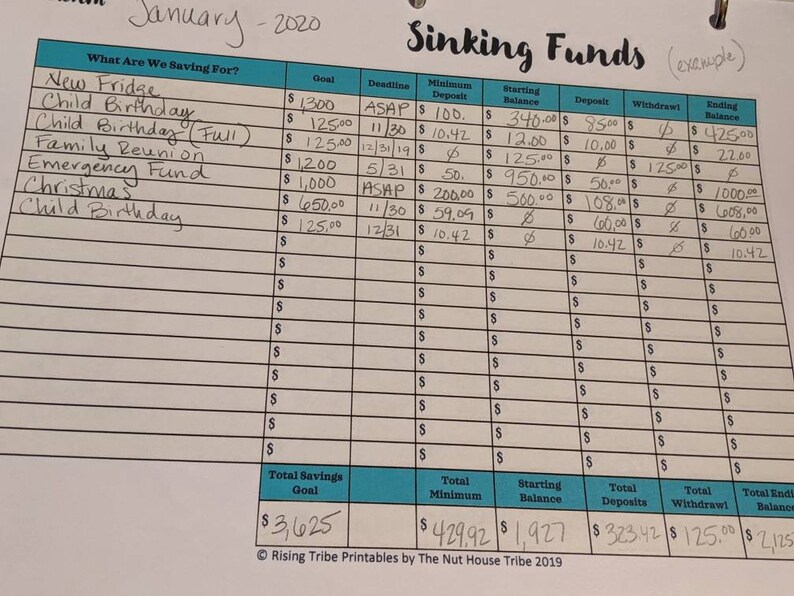 January - 2020
Sinking Funds (example)
What Are We Saving For? Goal Deadline Minimum Deposit Starting Balance Deposit Withdrawl Ending Balance
New Fridge $ 1,300 ASAP $ 100. $ 340.00 $ 85.00 $ ø $ 425.00
Child Birthday $ 125.00 11/30 $ 10.42 $ 12.00 $ 10.00 $ ø $ 22.00
Child Birthday (Full) $ 125.00 12/31/19 $ ø $ 125.00 $ ø $ 125.00 $ ø
Family Reunion $ 1,200 5/31 $ 50. $ 950.00 $ 50.00 $ ø $ 1000.00
Emergency Fund $ 1,000 ASAP $ 200.00 $ 500.00 $ 108.00 $ ø $ 608.00
Christmas $ 650.00 11/30 $ 59.09 $ ø $ 60.00 $ ø $ 60.00
Child Birthday $ 125.00 12/31 $ 10.42 $ ø $ 10.42 $ ø $ 10.42
$ $ $ $ $ $
$ $ $ $ $ $
$ $ $ $ $ $
$ $ $ $ $ $
$ $ $ $ $ $
$ $ $ $ $ $
$ $ $ $ $ $
$ $ $ $ $ $
$ $ $ $ $ $
$ $ $ $ $ $
Total Savings Goal Total Minimum Starting Balance Total Deposits Total Withdrawl Total Balance
$ 3,625 $ 429.92 $ 1,927 $ 323.42 $ 125.00 $ 2,125
© Rising Tribe Printables by The Nut House Tribe 2019